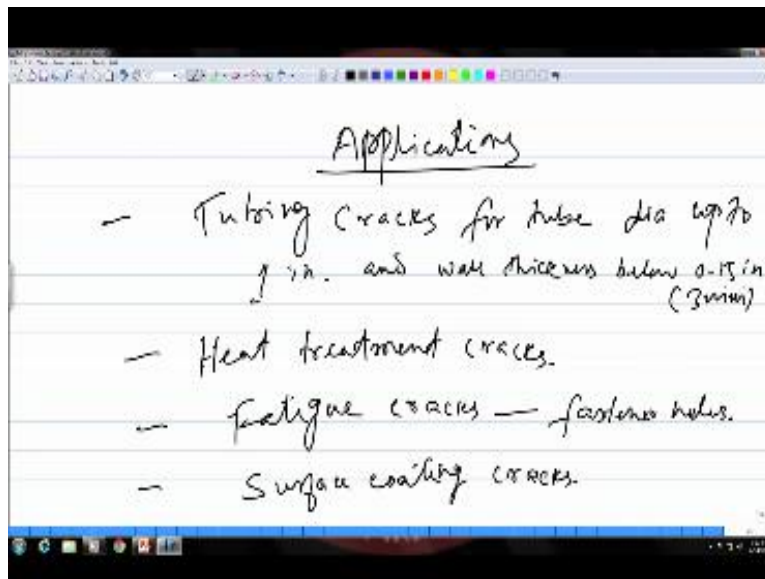 Applications
- Tubing cracks for tube dia upto
in. and wall thickness below 0.15 in
(3mm)
- Heat treatment cracks.
- Fatigue cracks - fastener holes.
- Surface coating cracks.